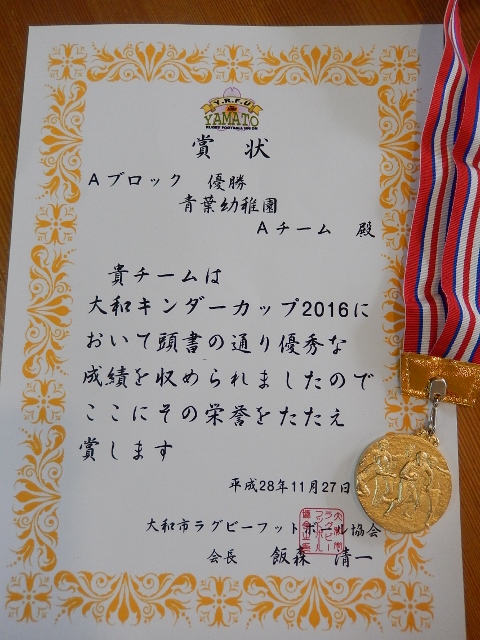 Y.R.F.U
YAMATO
RUGBY FOOTBALL UNION
賞状
Aブロック 優勝
青葉幼稚園
Aチーム 殿
貴チームは
大和キンダーカップ2016に
おいて頭書の通り優秀な
成績を収められましたので
ここにその栄誉をたたえ
賞します
平成28年11月27日
大和市ラグビーフットボール協会
会長 飯森 清一